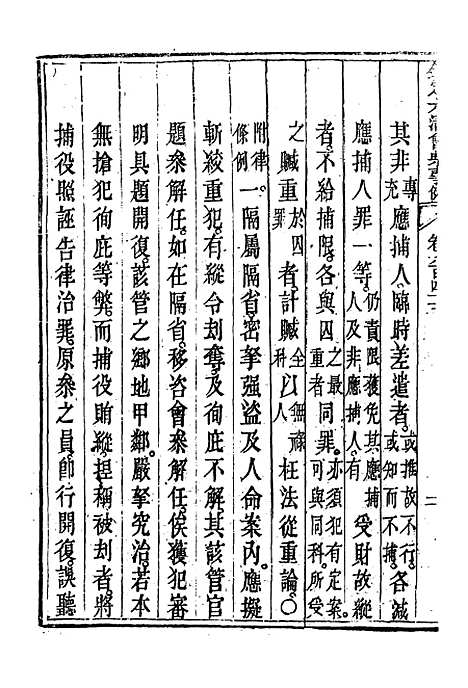 欽定大清會典事例 卷八百四十
其非專充應捕人臨時差遣者或推故不行或知而不捕各減
應捕人罪一等仍責限獲免其應捕人及非應捕人有受財故縱
者不給捕限各與囚之最重者同罪亦須犯有定案可與同科所受
之贓重於囚者計贓全科以無祿人枉法從重論○
附律條例一隔屬隔省密拏強盜及人命案內應擬
斬絞重犯有縱令刦奪及徇庇不解其該管官
題參解任如在隔省移咨會參解任俟獲犯審
明具題開復該管之鄉地甲鄰嚴拏究治若本
無搶犯徇庇等弊而捕役賄縱揑稱被刦者將
捕役照誣告律治罪原參之員卽行開復誤聽